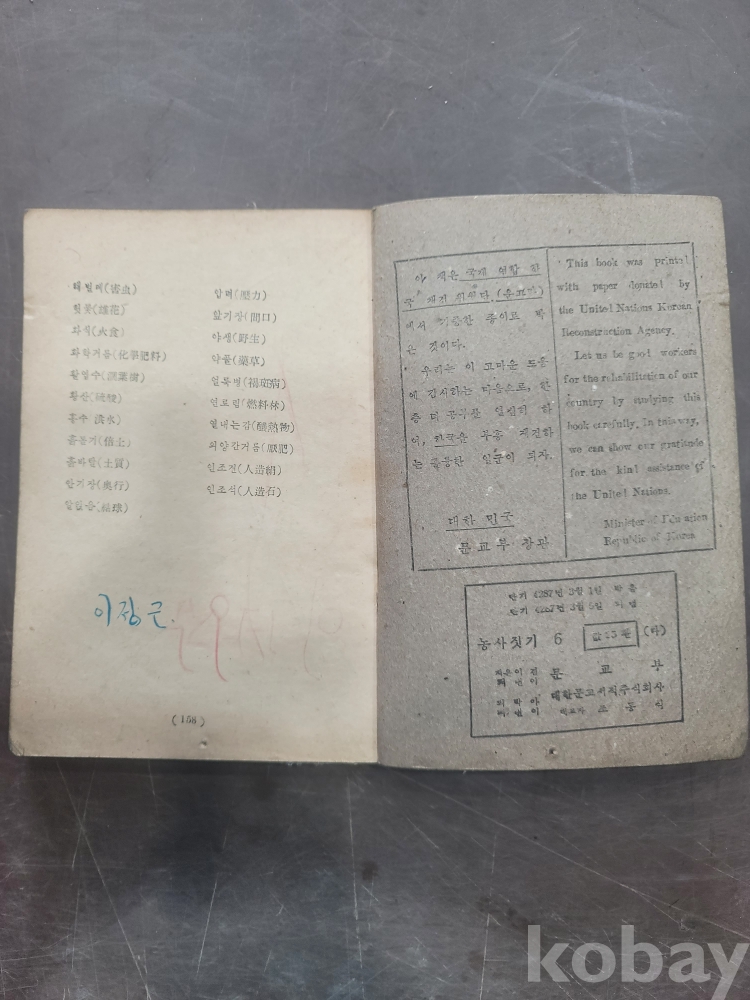 해벌레(害虫)
화식(火食)
화학거름(化學肥料)
활엽수(濶葉樹)
황산(硫酸)
홍수(洪水)
흙바탕(土質)
안기장(奥行)
알칼륨(結球)
압력(壓力)
앞기장(間口)
야생(野生)
약풀(藥草)
연료림(燃料林)
인조견(人造絹)
인조석(人造石)
이장근
(168)
이 책은 국제 연합 한
국 재건 위원단 (운끄라)
에서 기증한 종이로 박
은 것이다.
우리는 이 고마운 도움
에 감사하는 마음으로, 한
층 더 공부를 열심히 하
여, 한국을 부흥 재건하
는 훌륭한 일군이 되자.
대한 민국
문교부 장관
This book was printed
with paper donated by
the United Nations Korean
Reconstruction Agency.
Let us be good workers
for the rehabilitation of our
country by studying this
book carefully. In this way,
we can show our gratitude
for the kind assistance of
the United Nations.
Minister of Education
Republic of Korea
단기 4287년 3월 1일 박음
단기 4287년 3월 5일 펴냄
농사짓기 6 (하)
지은이 겸
펴낸이 문교부
대한문교서적주식회사
대표자 조동식
kobay